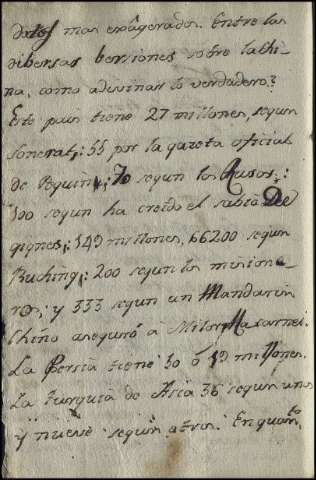 datos mas exâgerados. Entre las
dibersas bersiones sobre la Chi-
na, como adivinar lo verdadero?
Este pais tiene 27 millones, segun
Sonerat; 55 por la gazeta oficial
de Pequin; 70 segun los Rusos;
100 segun ha creido el sabio De
gignes; 149 millones, 66200 segun
Buching; 200 segun los misione-
ros; y 333 segun un Mandarin
Chino aseguró á Milor Macarnei.
La Persia tiene 30 ó 19 millones.
La turquia de Asia 36 segun unos
y nueve segun otros. En quanto